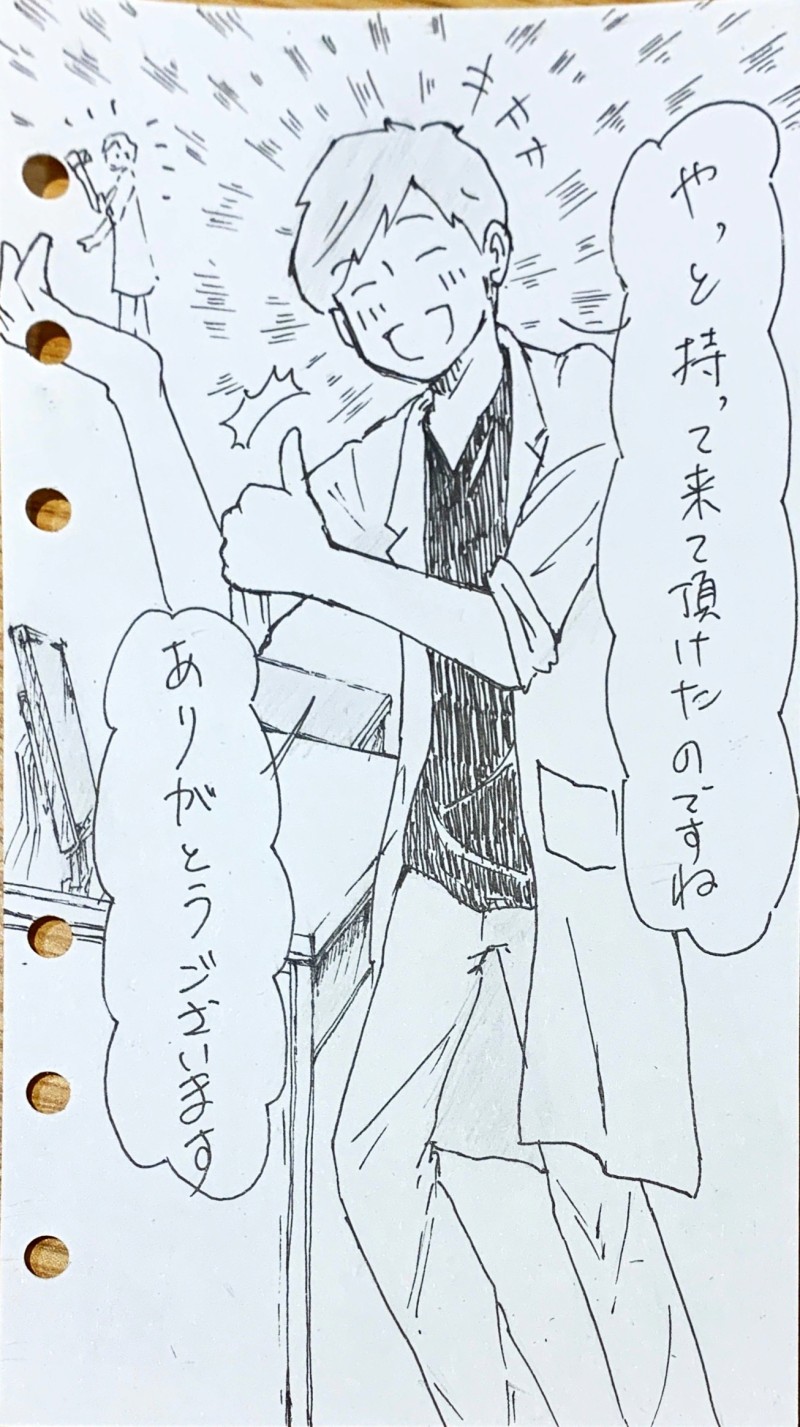 やっと持って来て頂けたのですね
ありがとうございます